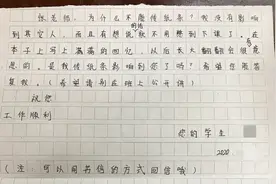 张老师，为什么不能传纸条？我没有影响
到其它人，而且有想说的话，就不用憋到下课了。在
本子上写上满满的回忆，以后长大了翻翻会很意
思的。是我传纸条影响到您了吗？希望您能答
复我。（希望请别在班上公开偶）
祝您
工作顺利
您的学生
2020
（注：可以用书信的方式回信哦）